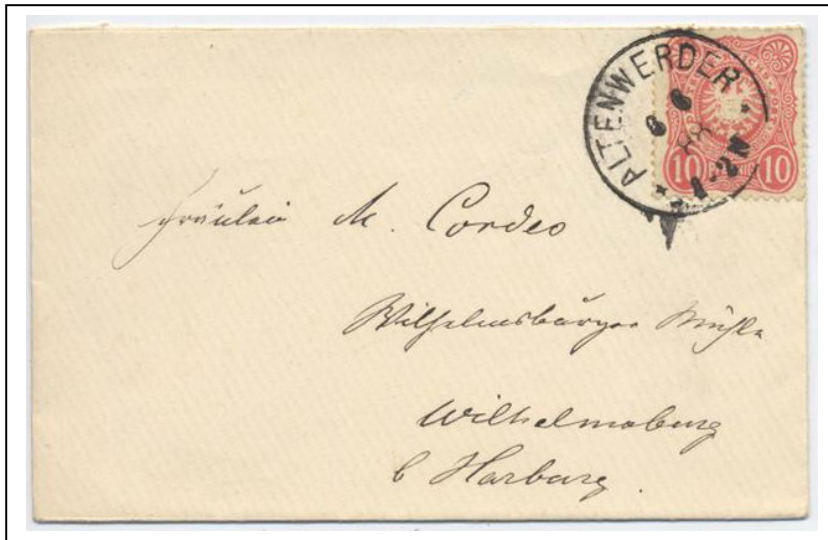 ALTENWERDER
6 6
88
1-2N
10 10
Fräulein M. Cordes
Wilhelmsburger Mühle
Wilhelmsburg
b Harburg.